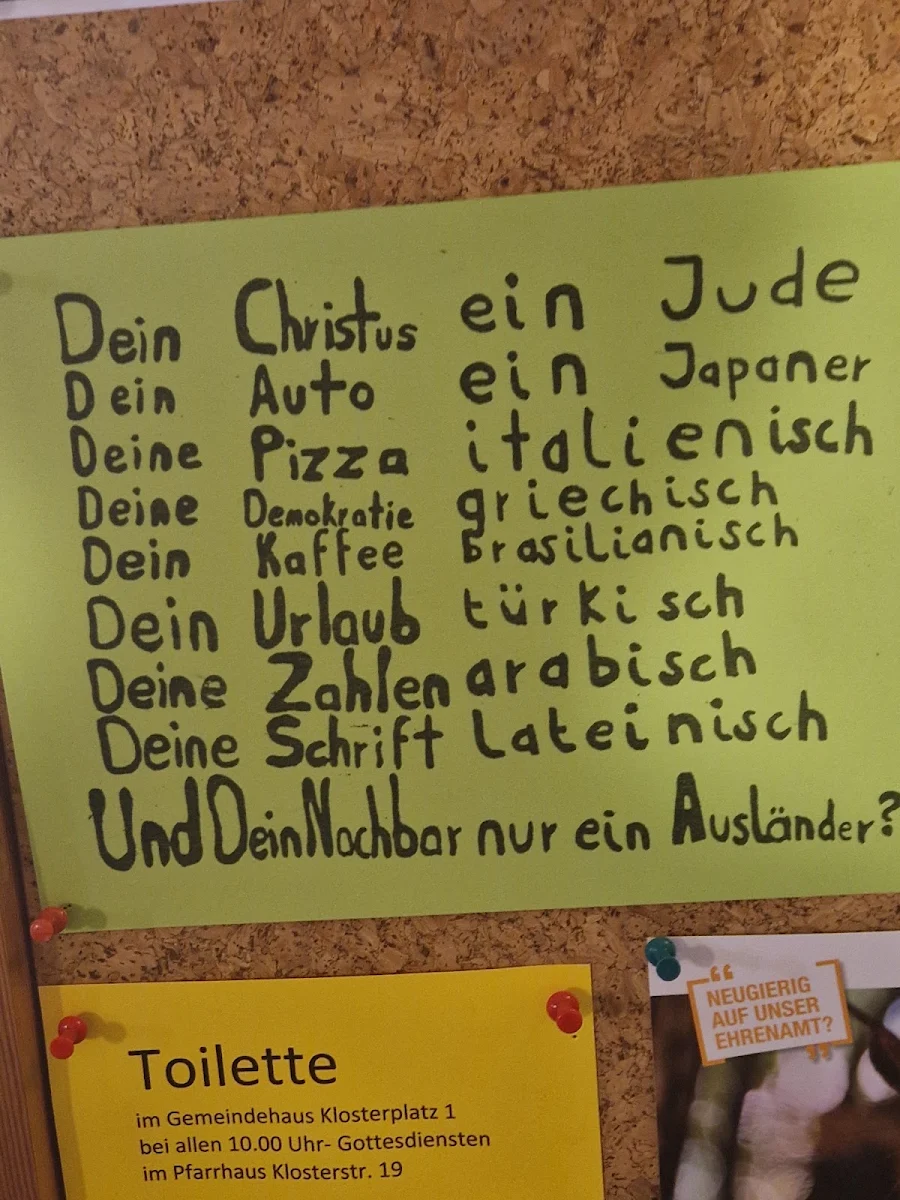 Dein Christus ein Jude
Dein Auto ein Japaner
Deine Pizza italienisch
Deine Demokratie griechisch
Dein Kaffee brasilianisch
Dein Urlaub türkisch
Deine Zahlen arabisch
Deine Schrift lateinisch
Und Dein Nachbar nur ein Ausländer?
Toilette
im Gemeindehaus Klosterplatz 1
bei allen 10.00 Uhr- Gottesdiensten
im Pfarrhaus Klosterstr. 19
“NEUGIERIG
AUF UNSER
EHRENAMT?”